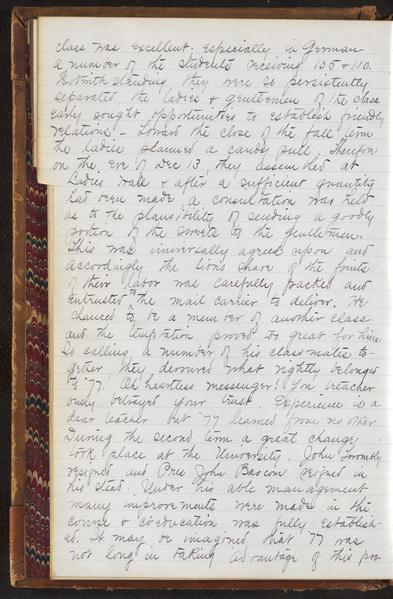 class was excellent; especially in German
a number of the students receiving 105 & 110.
Notwithstanding they were so persistently
separated, the ladies & gentlemen of the class
early sought opportunities to establish friendly
relations. - Toward the close of the fall term
the ladies planned a candy pull. Therefore
on the eve of Dec 13, they assembled at
Ladies Hall & after a sufficient quantity
had been made, a consultation was held
as to the plausibility of sending a goodly
portion of the sweets to the gentlemen.
This was universally agreed upon and
accordingly the lion's share of the fruits
of their labor was carefully packed and
entrusted to the mail carrier to deliver. He
chanced to be a member of another class
and the temptation proved too great for him.
So calling a number of his classmates to-
gether they devoured what rightly belonged
to '77. Oh heartless messenger! You treacher
ously betrayed your trust. Experience is a
dear teacher but '77 learned from no other
During the second term a great change
took place at the University. John Twombly
resigned and Pres John Bascom reigned in
his stead. Under his able management
many improvements were made in the
course & coeducation was fully establish-
ed. It may be imagined that '77 was
not long in taking advantage of this pro-